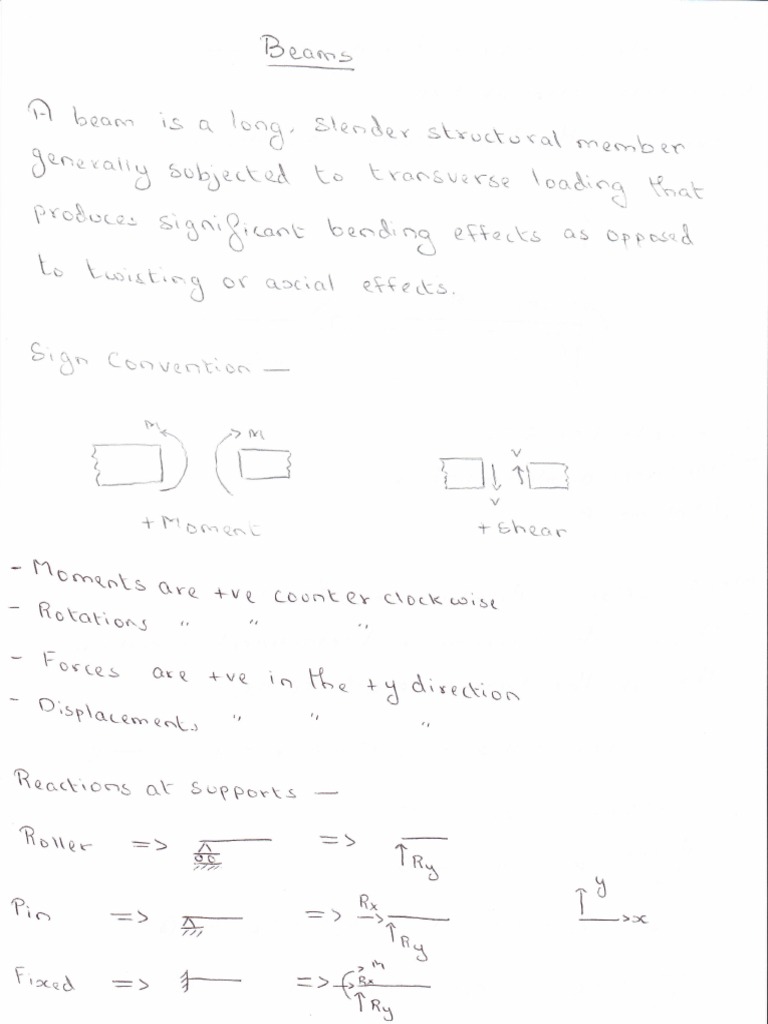 Beams
A beam is a long, slender structural member
generally subjected to transverse loading that
produces significant bending effects as opposed
to twisting or axial effects.
Sign Convention —
M M
V
V
+ Moment
+ Shear
- Moments are +ve counter clockwise
- Rotations " " "
- Forces are +ve in the +y direction
- Displacements " " "
Reactions at supports —
Roller => => Ry
y
x
Pin => => Rx Ry
Fixed => => M Rx Ry